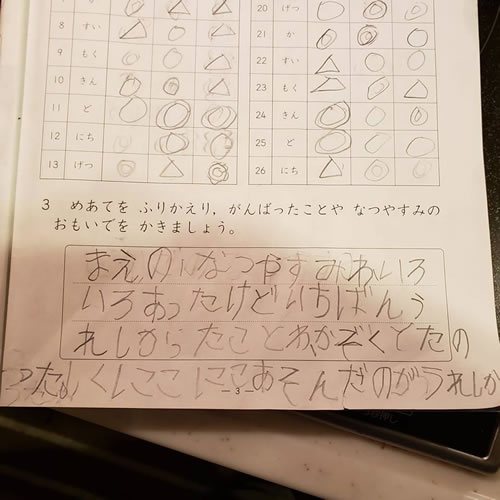 8 すい
9 もく
10 きん
11 ど
12 にち
13 げつ
20 げつ
21 か
22 すい
23 もく
24 きん
25 ど
26 にち
3 めあてを ふりかえり，がんばったことや なつやすみの
おもいでを かきましょう。
まえの なつやすみわいろ
いろあったけどいちばんう
れしからたことわかぞくでたの
くにこにこあそんだのがうれしか
- 3 -